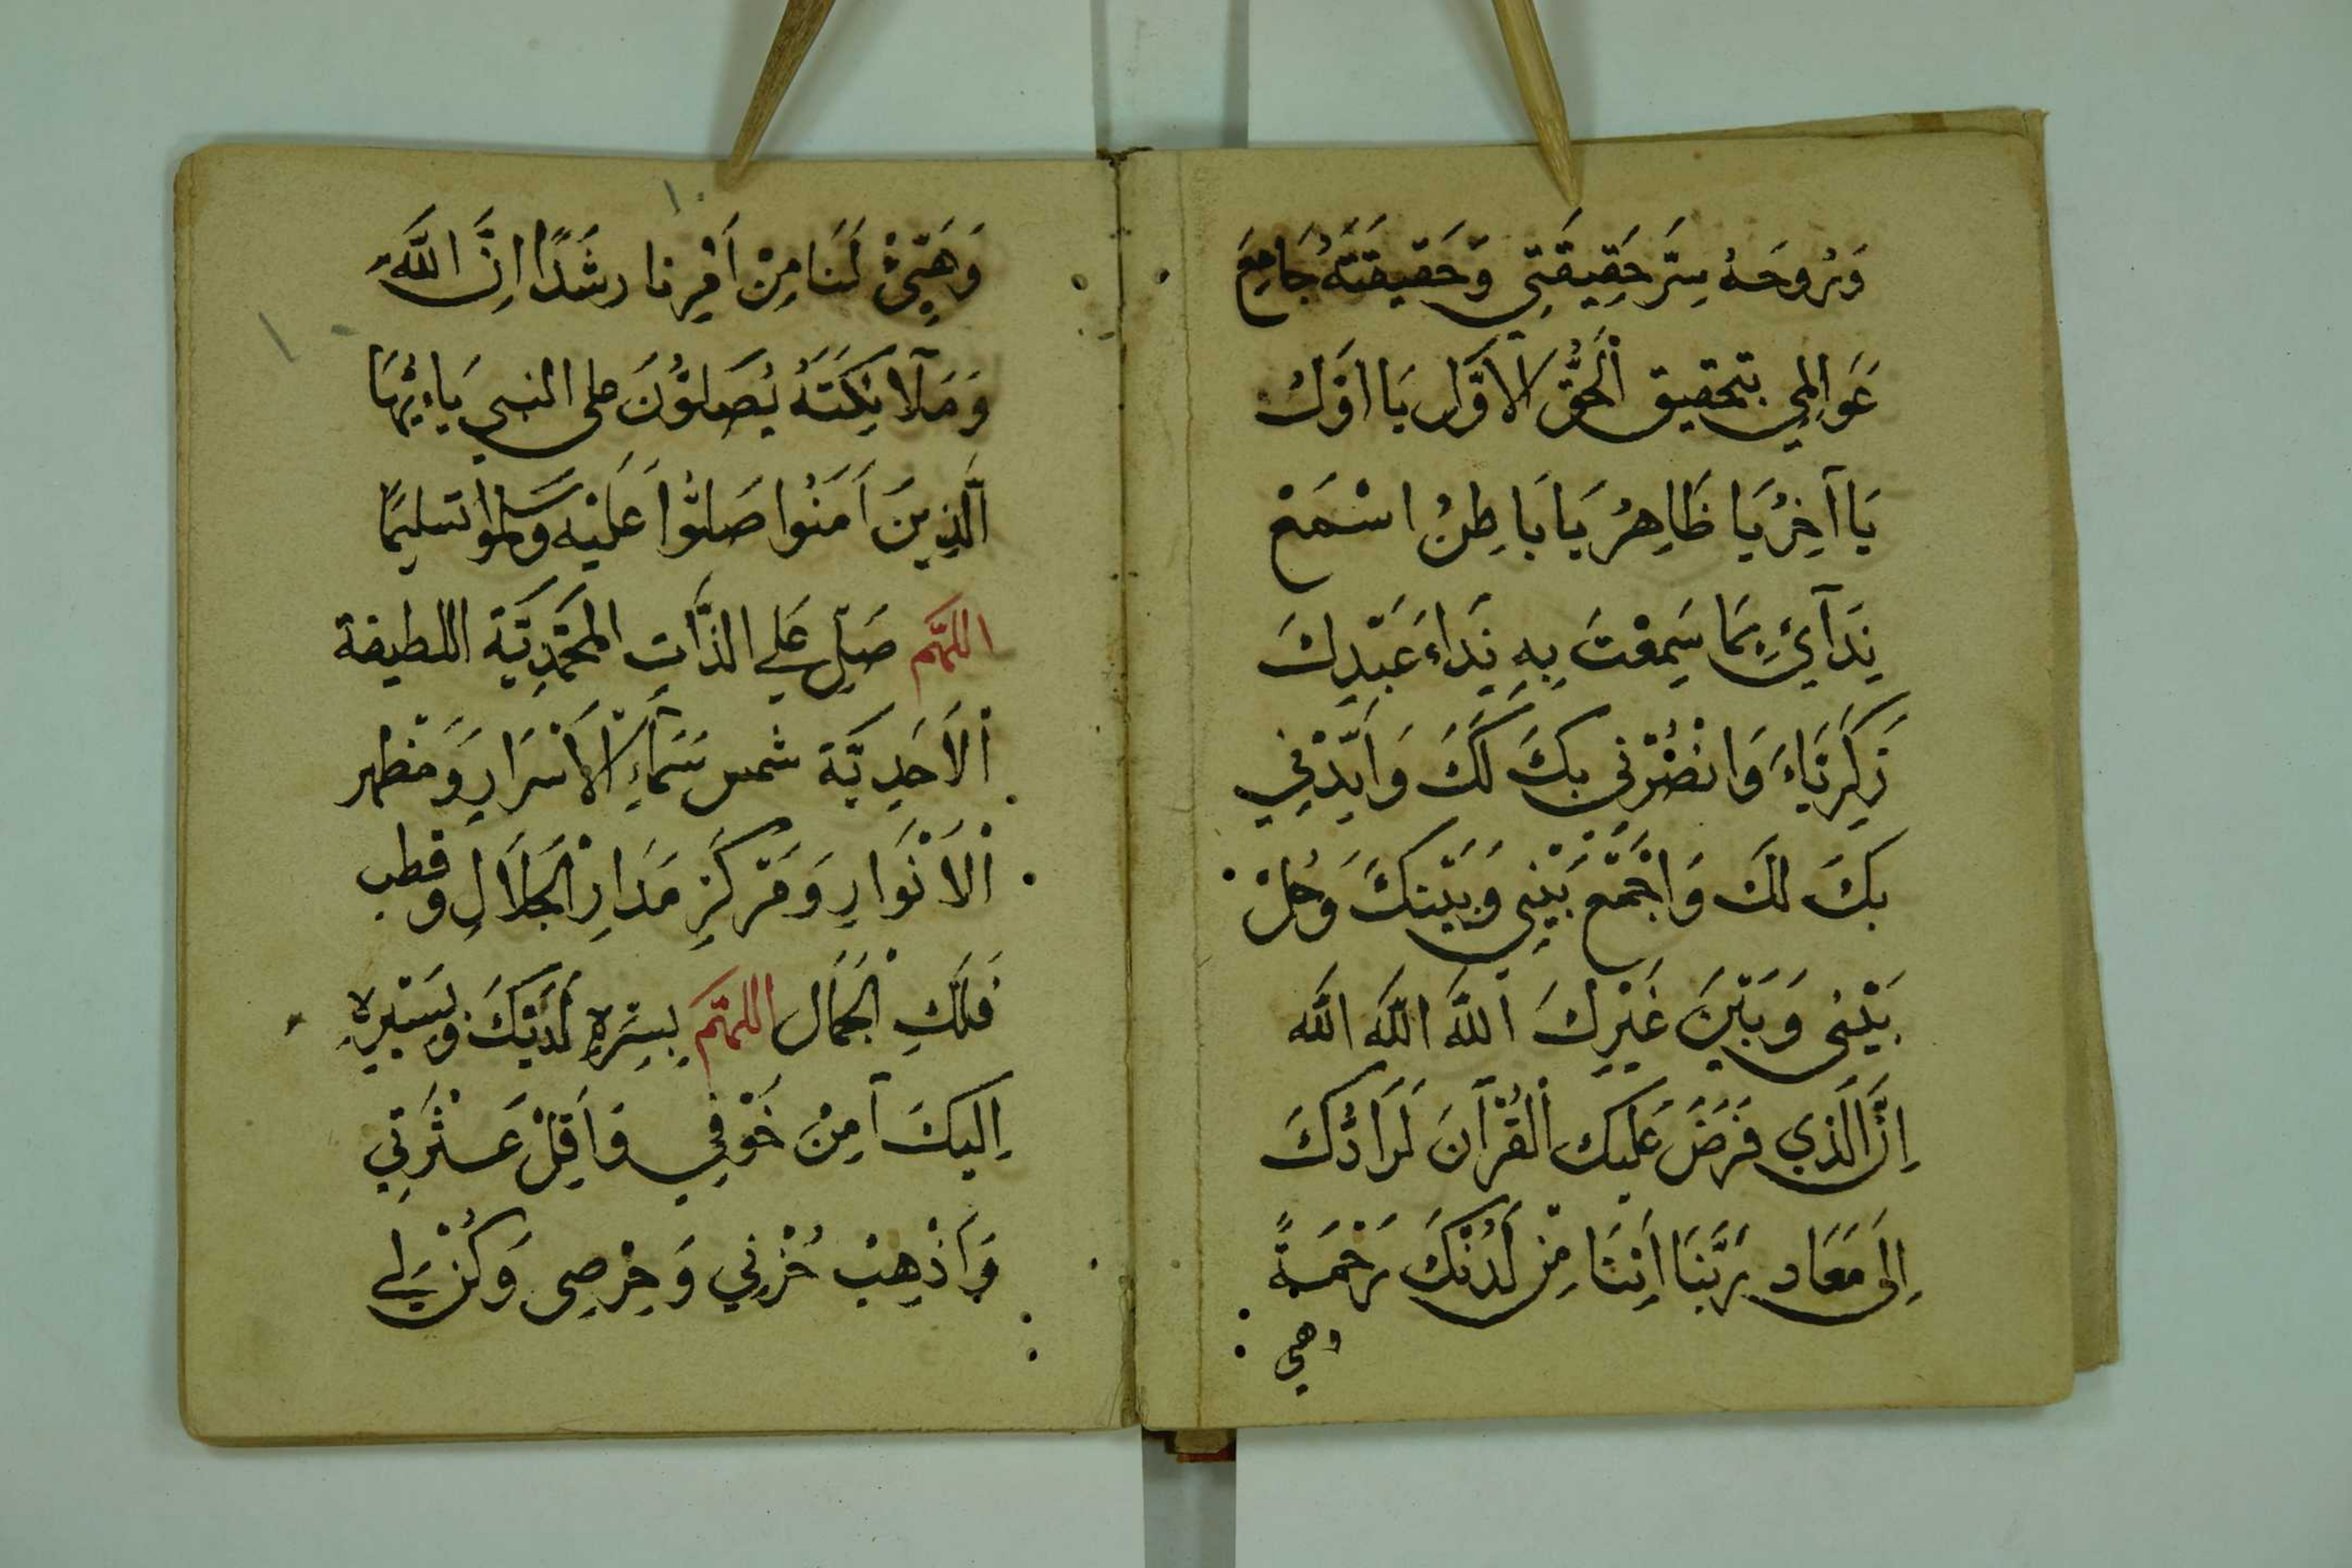 وَرُوحَهُ سِرَّ حَقِيقَتِي وَحَقِيقَتَهُ جَامِعَ
عَوَالِمِي بتحقيق الْحَقِّ الأَوَّلِ يَا اَوَّلُ
يَا آخِرُ يَا ظَاهِرُ يَا بَاطِنُ اسْمَعْ
نِدَآئِي بِمَا سَمِعْتَ بِهِ نِدَاءَ عَبْدِكَ
زَكَرِيَّاءَ وَانْصُرْنِي بِكَ لَكَ وَاَيِّدْنِي
بكَ لكَ وَاجْمَعْ بَيْنِي وَبَيْنكَ وَحُلْ
بَيْنِى وَبَيْنَ غَيْرِكَ اللَّه اللَّه اللَّه
اِنَّ الَّذِي فَرَضَ عَلَيكَ الْقُرْآنَ لَرَادُّكَ
اِلَى مَعَاد رَبَّنَا اَتِنَا مِنْ لَدُنْكَ رَحْمَةً
وهي
١٠
وَهَيِّئْ لَنَا مِنْ اَمْرِنَا رشَدًا اِنَّ اللَّهَ
وَمَلآئِكَتَهُ يُصَلُّونَ على النبي يَا اَيُّهَا
الَّذِينَ اَمَنُوا صَلُّوا عَلَيْهِ وسَلموا تسليمًا
اللهُمَّ صَلِّ عَلى الذَّاتِ المُحَمَّدِيَّة اللطيفة
الْاَحَدِيَّة شمس سَمَاءِ الْاَسْرَارِ وَمَظهر
الْاَنْوَارِ وَمَرْكَزِ مَدَارِ الْجَلَالِ وقطب
فَلَكِ الْجَمَال اللهُمَّ بِسِرِّهِ لَدَيْكَ وبِسَيْرِهِ
اِلَيكَ آمِنْ خَوْفِي وَاَقِلْ عَثْرَتِي
وَاَذْهِبْ حُزْنِي وَحِرْصِى وَكُنْ لِي
١٠